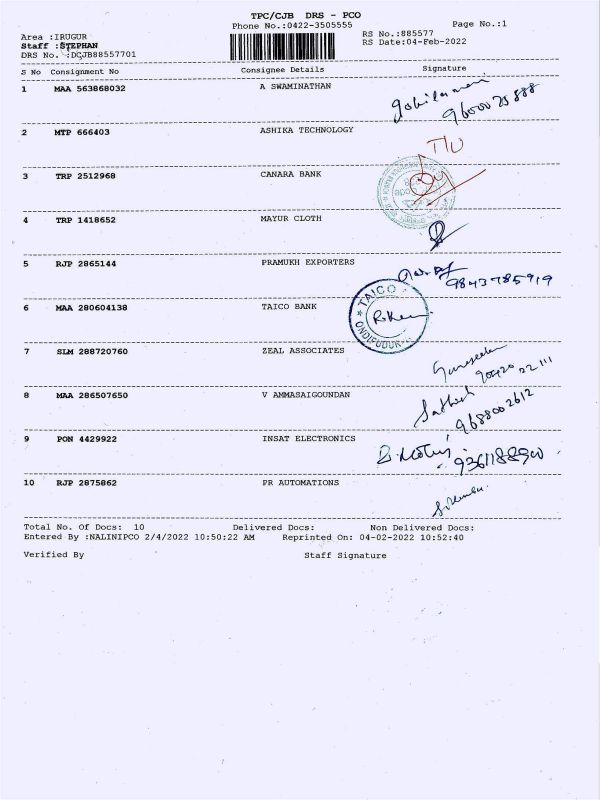 TPC/CJB DRS - PCO
Phone No.:0422-3505555
Page No.:1
Area :IRUGUR
RS No.:885577
Staff :STEPHAN
RS Date:04-Feb-2022
DRS No. :DCJB88557701
S No Consignment No Consignee Details Signature
1 MAA 563868032 A SWAMINATHAN
2 MTP 666403 ASHIKA TECHNOLOGY
T/U
3 TRP 2512968 CANARA BANK
4 TRP 1418652 MAYUR CLOTH
5 RJP 2865144 PRAMUKH EXPORTERS
9843785919
6 MAA 280604138 TAICO BANK
TAICO
ONDIPUDUR
7 SLM 288720760 ZEAL ASSOCIATES
8 MAA 286507650 V AMMASAIGOUNDAN
Sathish
9688002612
9 PON 4429922 INSAT ELECTRONICS
10 RJP 2875862 PR AUTOMATIONS
Total No. Of Docs: 10 Delivered Docs: Non Delivered Docs:
Entered By :NALINIPCO 2/4/2022 10:50:22 AM Reprinted On: 04-02-2022 10:52:40
Verified By Staff Signature